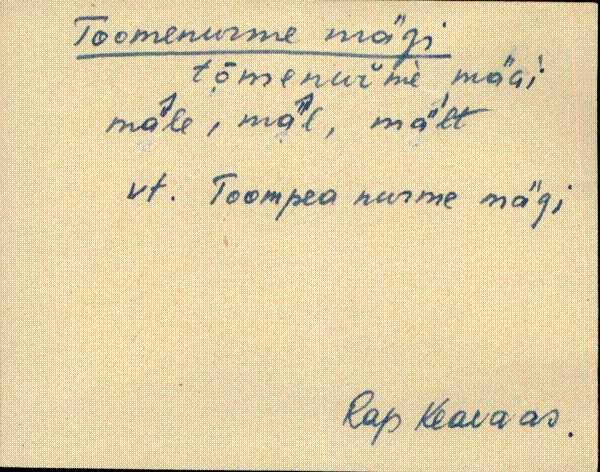 Toomenurme mägi
tōmenurmè mäg̀i
mä̀le, mä̀l, mä̀lt
vt. Toompea nurme mägi
Rap Keava as.